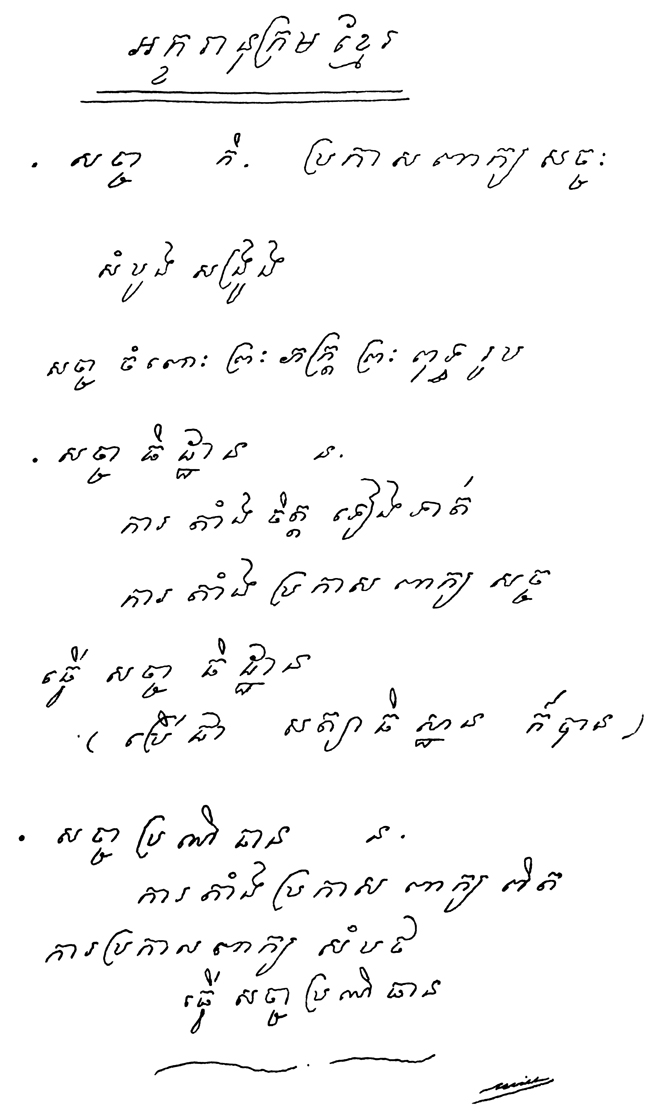 អក្ខរានុក្រម ខ្មែរ
. សច្ចា កិ. ប្រកាស ពាក្យ សច្ចៈ
សំបូង សង្រូង
សច្ចា ចំពោះ ព្រះ ភក្ត្រ ព្រះ ពុទ្ធ រូប
. សច្ចា ធិ ដ្ឋាន ន.
ការ តាំង ចិត្ត ទៀង ទាត់
ការ តាំង ប្រកាស ពាក្យ សច្ច
ធ្វើ សច្ចា ធិ ដ្ឋាន
( ប្រើ ជា សត្យា ធិ ស្ឋាន ក៏បាន )
. សច្ចា ប្រណិ ធាន ន.
ការ តាំង ប្រកាស ពាក្យ ពិត
ការប្រកាស ពាក្យ សំបថ
ធ្វើ សច្ចា ប្រណិ ធាន